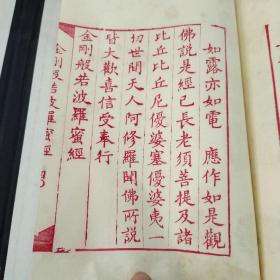 如露亦如電　應作如是觀
佛說是經已長老須菩提及諸
比丘比丘尼優婆塞優婆夷一
切世間天人阿修羅聞佛所說
皆大歡喜信受奉行
金剛般若波羅蜜經
金剛般若波羅蜜經